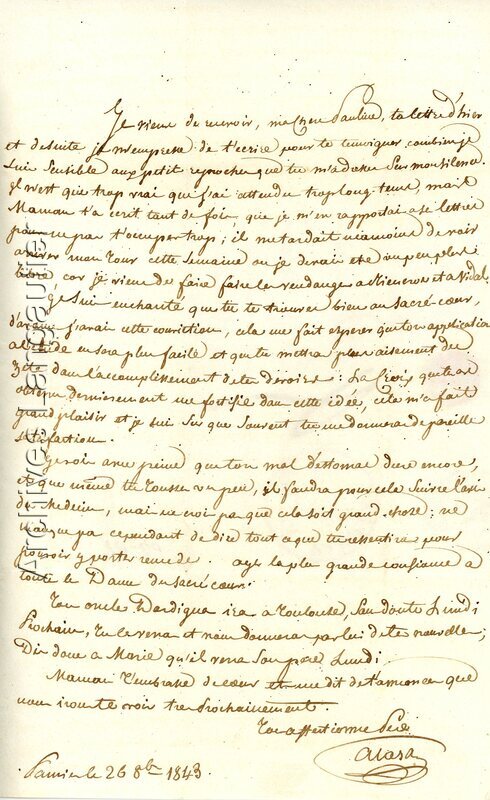 Je viens de recevoir, ma chere Pauline, ta lettre d'hier
et desuite je m'empresse de t'ecrire pour te temoigner combien je
suis sensible aux petit reproches que tu m'adresse sur mon silence.
il n'est que trop vrai que j'ai attendu trop long-tems, mais
Maman t'a ecrit tant de fois, que je m'en rapportai a ses lettres
pour ne pas t'occuper trop; il me tardait neanmoins de voir
arriver mon tour cette semaine ou je devais etre un peu plus
libre, car je viens de faire faire les vendanges a et a Vidal.
Je suis enchanté que tu te trouves bien au sacré-cœur,
d'avance j'avais cette conviction, cela me fait esperer que ton application
a l'etude en sera plus facile et que tu mettras plus aisement du
zèle dans l'accomplissement de tes devoirs: La Croix que tu as
obtenu dernierement me fortifie dans cette idée, cela m'a fait
grand plaisir et je suis sur que souvent tu me donneras de pareille
satisfaction.
Je vois avec peine que ton mal d'estomac dure encore,
et que même tu tousses un peu, il faudra pour cela suivre l'avis
du Medecin, mais ne crois pas que cela soit grand chose: ne
manque pas cependant de dire tout ce que tu ressentiras pour
pouvoir y porter remede. ayes la plus grande confiance a
toutes les Dames du sacré cœur.
Ton oncle Dardigna ira a Toulouse, sans doute Lundi
prochain, tu le verras et nous donneras par lui de tes nouvelles;
Dis donc a Marie qu'il verra son pere Lundi
Maman t'embrasse de cœur et me dit de t'annoncer que
nous irons te voir tres prochainement.
Ton affectionné Père
Pamiers le 26 8bre 1843
Archives Vergauzie